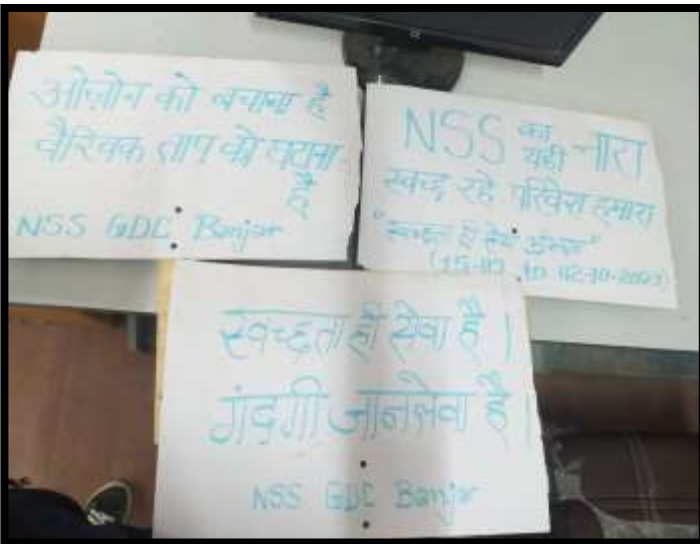 ओज़ोन को बचाना है
वैश्विक ताप को घटाना
है
NSS GDC Banjar
NSS का यही नारा
स्वच्छ रहे परिवेश हमारा
"स्वच्छता ही सेवा
to 02-10-2023)
स्वच्छता ही सेवा है।
गंदगी जानलेवा है।
NSS GDC Banjar